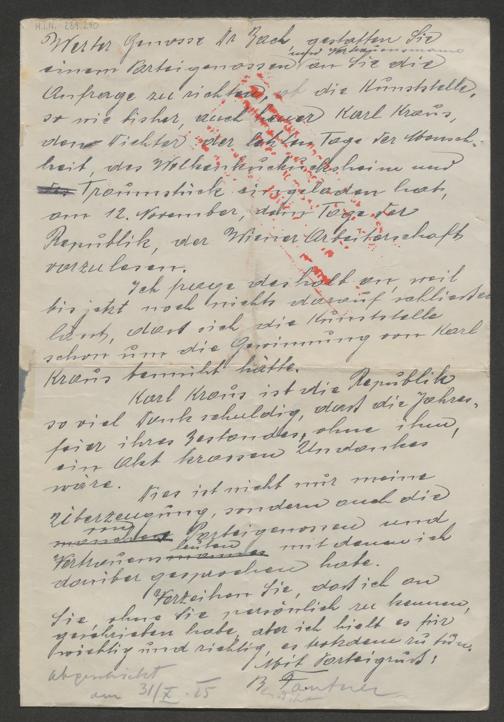 H.I.N. 239.240
Werter Genosse Dr Bach gestatten Sie
und Vertrauensmann
einem Parteigenossen an Sie die
Anfrage zu richten, ist die Kunststelle,
so wie bisher, auch heuer Karl Kraus,
den Dichter der letzten Tage der Mensch-
heit, des Wolkenkuckucksheims und
Traumstück eingeladen hat,
am 12. November, dem Tage der
Republik, der Wiener Arbeiterschaft
vorzulesen.
Ich frage deshalb an, weil
bis jetzt noch nichts darauf schliessen
lässt, dass sich die Kunststelle
schon um die Gewinnung von Karl
Kraus bemüht hätte.
Karl Kraus ist die Republik
so viel Dank schuldig, dass die Jahres-
feier ihres Bestandes, ohne ihm,
ein Akt krassen Undankes
wäre.
Dies ist nicht nur meine
Überzeugung, sondern auch die
Parteigenossen und
leuten
Vertrauensmannes mit denen ich
darüber gesprochen habe.
Verzeihen Sie, dass ich an
Sie, ohne Sie persönlich zu kennen,
geschrieben habe, aber ich hielt es für
wichtig und richtig, es trotzdem zu tun.
Mit Parteigruss!
abgeschickt
am 31/X. 25
B